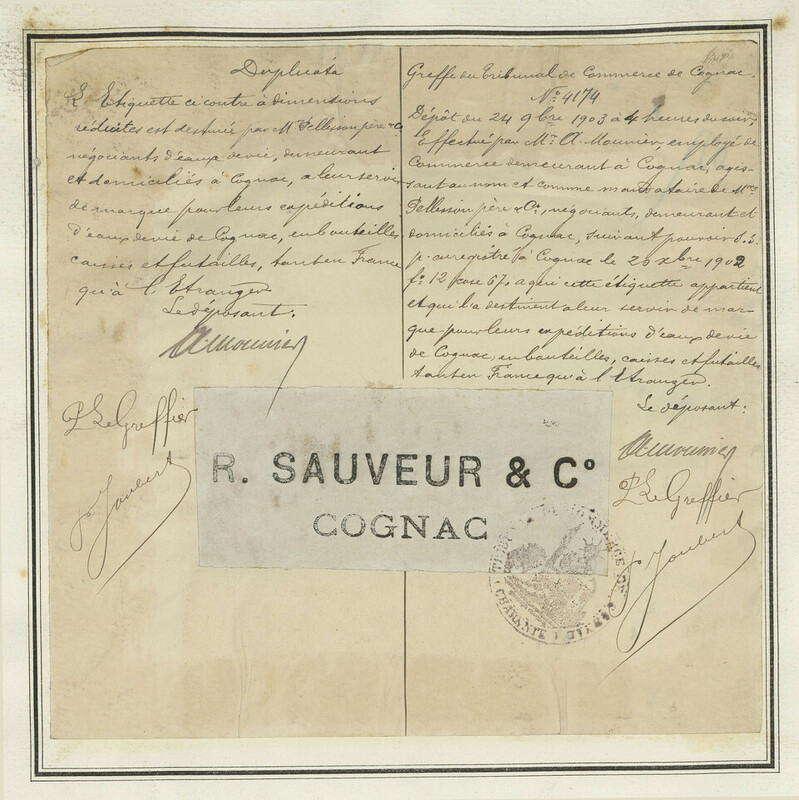 Duplicata
L'Etiquette ci contre à dimensions
réduites est destinée par Mrs Pellisson père & Co
négociants d'eaux devie, demeurant
et domiciliés à Cognac, a leur servir
de marque pour leurs expéditions
d'eaux devie de Cognac, en bouteilles,
caisses et futailles, tant en France
qu'à l'Etranger.
Le déposant:
A Mounier
P. Le Greffier
Joubert
Greffe du Tribunal de Commerce de Cognac.
No 4174
Dépôt du 24 9bre 1903 à 4 heures du soir,
Effectué par Mr A. Mounier, employé de
Commerce demeurant à Cognac, agis-
sant au nom et comme mandataire de Mrs
Pellisson père & Co, négociants, demeurant et
domiciliés à Cognac, suivant pouvoir s.s.
p. enregistré à Cognac le 20 xbre 1902
fo 12 case 67, a qui cette étiquette appartient
et qui l'a destinent a leur servir de mar-
que pour leurs expéditions d'eaux de vie
de Cognac, en bouteilles, caisses et futailles
tant en France qu'à l'Etranger.
Le déposant:
A Mounier
P. Le Greffier
Joubert
R. SAUVEUR & Co
COGNAC
TRIBUNAL DE COMMERCE DE COGNAC
(CHARENTE)